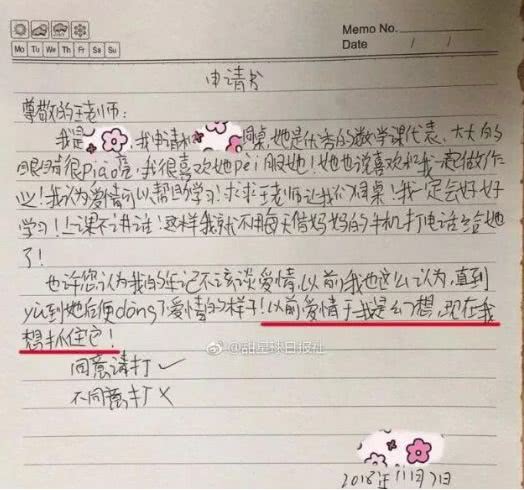 Memo No.
Mo Tu We Th Fr Sa Su
Date / /
申请书
尊敬的王老师:
我是,我申请和同桌,她是优秀的数学课代表,大大的
眼睛很piào亮,我很喜欢她pèi服她!她也说喜欢和我一起做作
业!我认为爱情可以帮助学习!求求王老师让我们同桌!我一定会好好
学习!上课不讲话!这样我就不用每天借妈妈的手机打电话给她
了!
也许您认为我的年纪不该谈爱情,以前我也这么认为,直到
yù到她后便dǒng了爱情的样子!以前爱情于我是幻想,现在我
想抓住它!
@甜星球日报社
同意请打✓
不同意打×
2018年11月7日